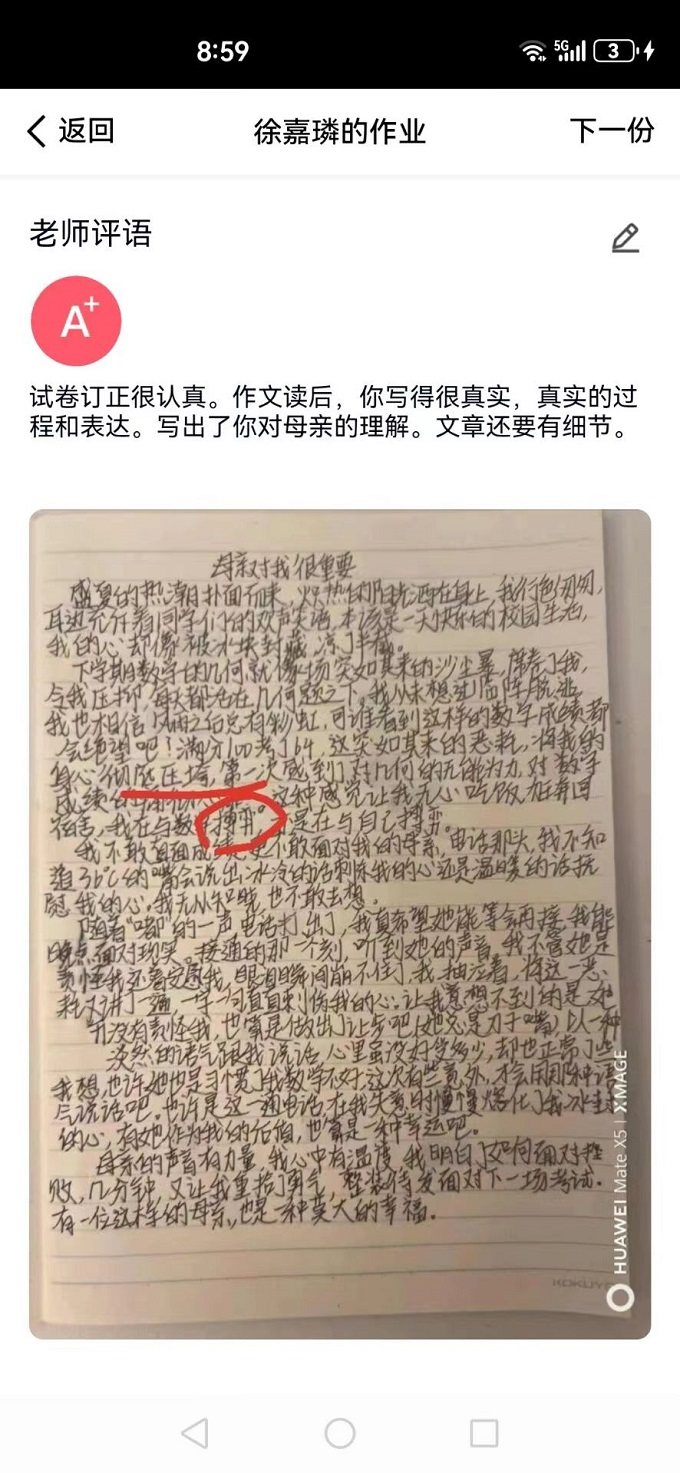 8:59
5G
3
返回
徐嘉璘的作业
下一份
老师评语
A+
试卷订正很认真。作文读后，你写得很真实，真实的过
程和表达。写出了你对母亲的理解。文章还要有细节。
母亲对我很重要
盛夏的热潮扑面而来，炽热的阳光洒在身上，我行色匆匆，
耳边充斥着同学们的欢声笑语，本该是一天快乐的校园生活，
我的心却像被冰块封藏，凉了半截。
下学期数学的几何就像一场突如其来的沙尘暴，席卷了我，
令我压抑，每天都活在几何题之下。我从未想过临阵脱逃，
我也相信风雨之后总有彩虹，可谁看到这样的数学成绩都
会绝望吧！满分100考了64，这突如其来的恶耗，将我的
身心彻底压垮，第一次感到了对几何的无能为力，对数学
成绩的 这种感觉让我无心吃饭，在弄回
宿舍，我在与数学搏弈，是在与自己搏弈。
我不敢直面成绩，更不敢面对我的母亲，电话那头，我不知
道36℃的嘴会说出冰冷的话刺痛我的心还是温暖的话抚
慰我的心。我无从知晓，也不敢去想。
随着“嘟”的一声电话打出了，我真希望她能等会再接，我能
晚点面对现实。接通的那一个刻，听到她的声音，我不管她是
责怪我还是安慰我，眼泪瞬间崩不住了，我抽泣着，将这一恶
耗又讲了一遍，一字一句直直刺伤我的心。让我意想不到的是她
并没有责怪我，也算是做出了让步吧（她总是刀子嘴），以一种
淡然的语气跟我说话，心里虽没好受多少，却也正常了些
我想，也许她也是习惯了我数学不好，这次有些意外，才会用那种语
气说话吧。也许是这一通电话，在我失意时慢慢熔化了我冰封
的心，有她作为我的后盾，也算是一种幸运吧。
母亲的声音有力量，我心中有温度，我明白了如何面对挫
败，几分钟，又让我重拾了勇气，整装待发面对下一场考试。
有一位这样的母亲，也是一种莫大的幸福。
KOKUYO
HUAWEI Mate X5 | XMAGE